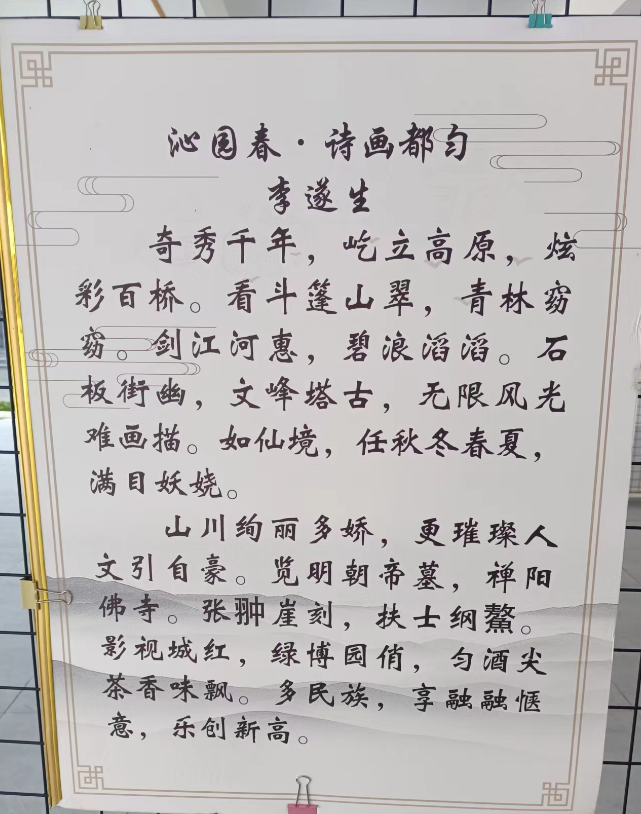 沁园春·诗画都匀
李遂生
奇秀千年，屹立高原，炫
彩百桥。看斗篷山翠，青林窈
窈。剑江河惠，碧浪滔滔。石
板街幽，文峰塔古，无限风光
难画描。如仙境，任秋冬春夏，
满目妖娆。
山川绚丽多娇，更璀璨人
文引自豪。览明朝帝墓，禅阳
佛寺。张翀崖刻，扶士纲鰲。
影视城红，绿博园俏，匀酒尖
茶香味飘。多民族，享融融惬
意，乐创新高。